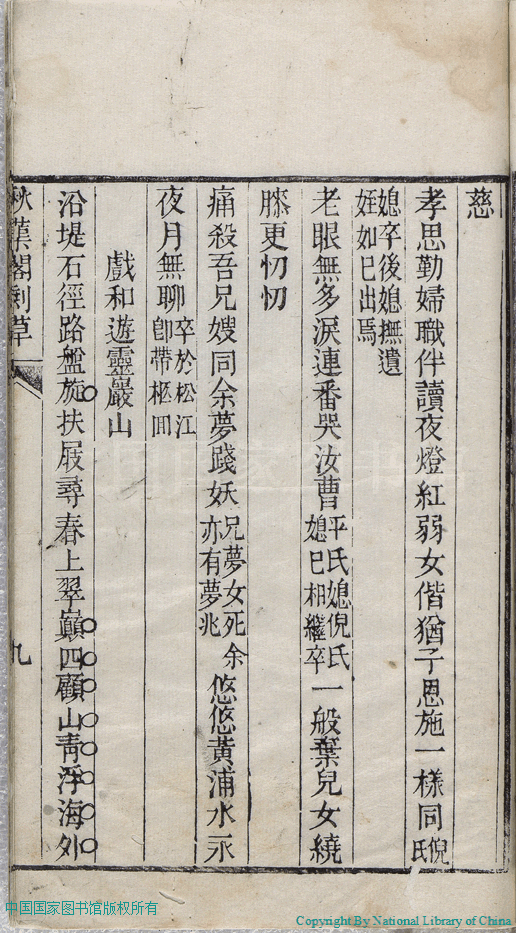 慈
孝思勤婦職伴讀夜燈紅弱女偕猶子恩施一樣同倪氏
媳卒後媳撫遺
姪如已出焉
老眼無多淚連番哭汝曹平氏媳倪氏
媳巳相繼卒一般棄兒女繞
膝更忉忉
痛殺吾兄嫂同余夢踐妖兄夢女死余
亦有夢兆悠悠黃浦水一永
夜月無聊卒於松江
卽帶柩回
戲和遊靈巖山
沿堤石徑路盤旋扶屐尋春上翠巔四顧山靑浮海外
閣剩草
九
中国国家图书馆版权所有
Copyright By National Library of China